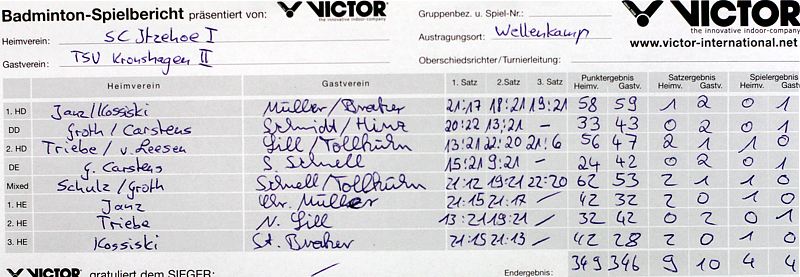 Badminton-Spielbericht präsentiert von: VICTOR the innovative indoor-company
Gruppenbez. u. Spiel-Nr.: VICTOR the innovative indoor-company
Heimverein: SC Itzehoe I
Austragungsort: Wellenkamp
www.victor-international.net
Gastverein: TSV Kronshagen II
Oberschiedsrichter/Turnierleitung:
Heimverein Gastverein 1. Satz 2. Satz 3. Satz Punktergebnis Heimv. Gastv. Satzergebnis Heimv. Gastv. Spielergebnis Heimv. Gastv.
1. HD Janz/Kossiski Müller/Braker 21:17 18:21 19:21 58 59 1 2 0 1
DD Groth / Carstens Schmidt/Hinz 20:22 13:21 – 33 43 0 2 0 1
2. HD Triebe / v. Leesen Gill/Tollkühn 13:21 22:20 21:6 56 47 2 1 1 0
DE G. Carstens S. Schnell 15:21 9:21 – 24 42 0 2 0 1
Mixed Schulz/Groth Schnell/Tollkühn 21:12 19:21 22:20 62 53 2 1 1 0
1. HE Janz Chr. Müller 21:15 21:17 / 42 32 2 0 1 0
2. HE Triebe N. Gill 13:21 19:21 / 32 42 0 2 0 1
3. HE Kossiski St. Braker 21:15 21:13 / 42 28 2 0 1 0
VICTOR gratuliert dem SIEGER: / Endergebnis: 349 346 9 10 4 4